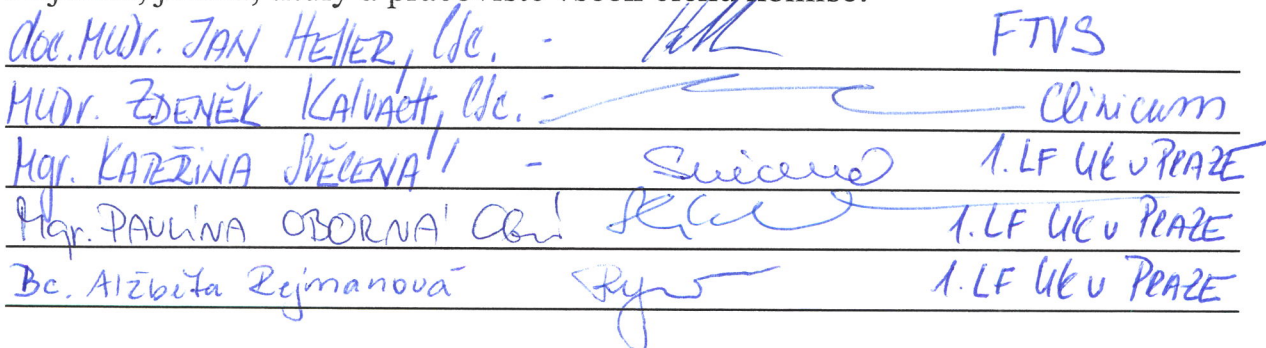 doc. MUDr. JAN HELLER, CSc. - FTVS
MUDr. ZDENĚK KALVACH, CSc. - Clinicum
Mgr. KATEŘINA SVĚCENÁ - Svěcená 1. LF UK v PRAZE
Mgr. PAULÍNA OBORNÁ 1. LF UK v PRAZE
Bc. Alžběta Rejmanová 1. LF UK v PRAZE